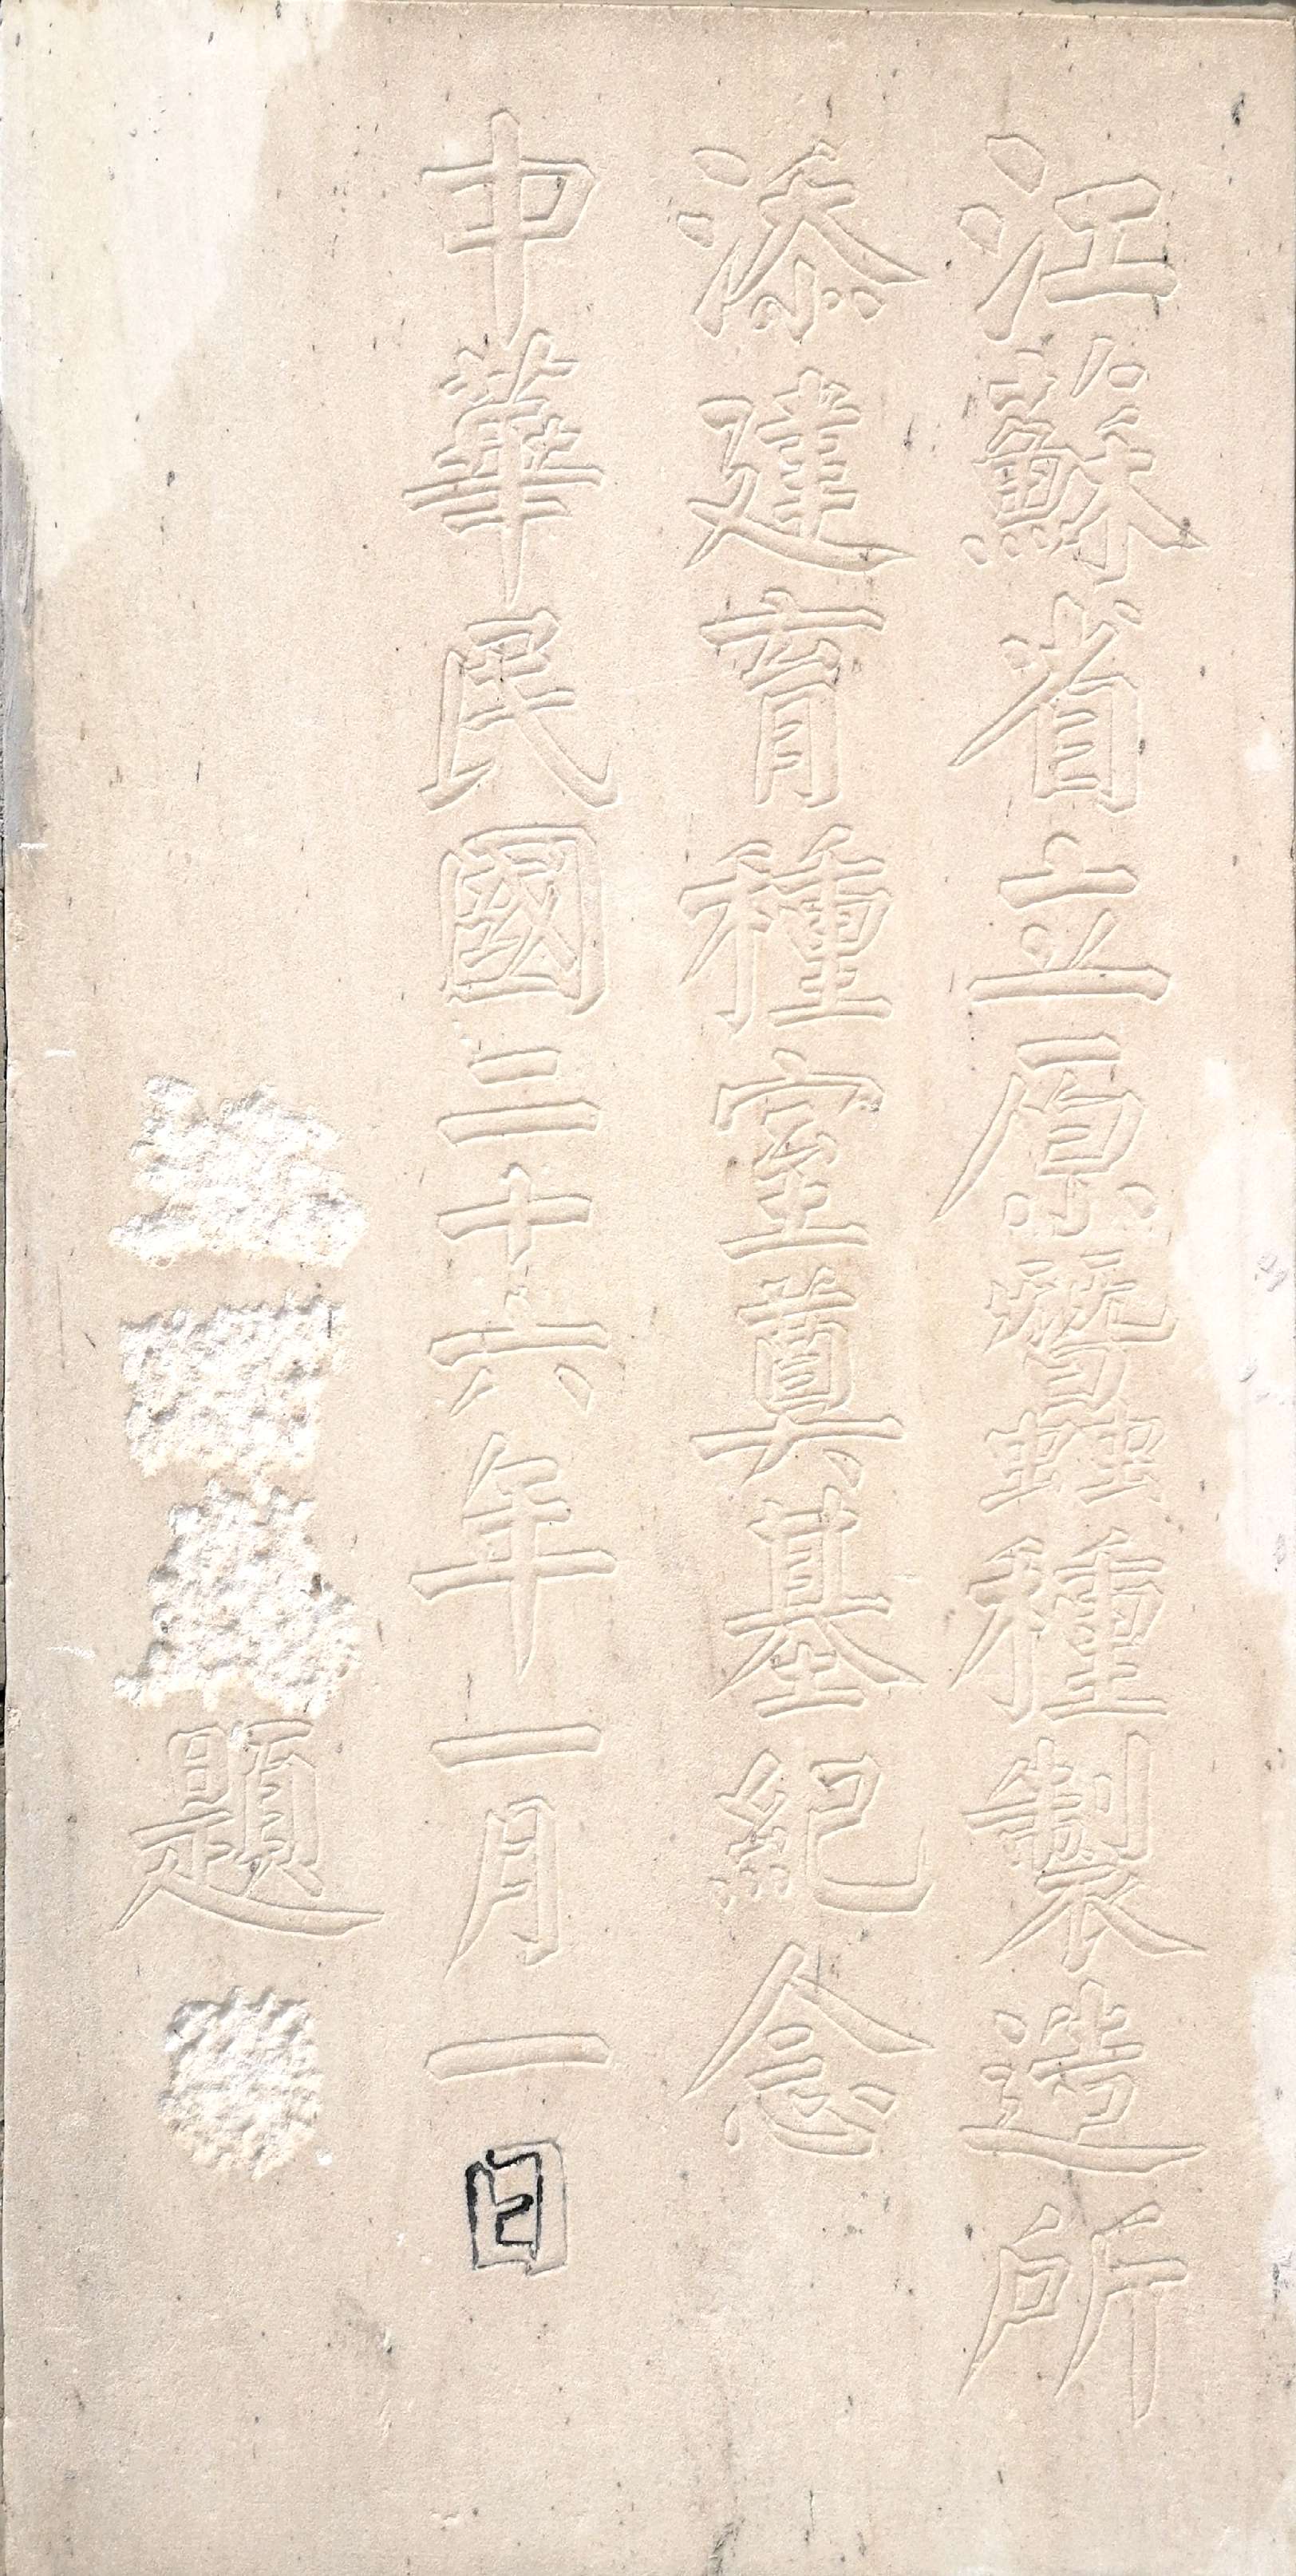 江蘇省立原蠶種製造所
添建育種室奠基紀念
中華民國二十六年一月一日
題